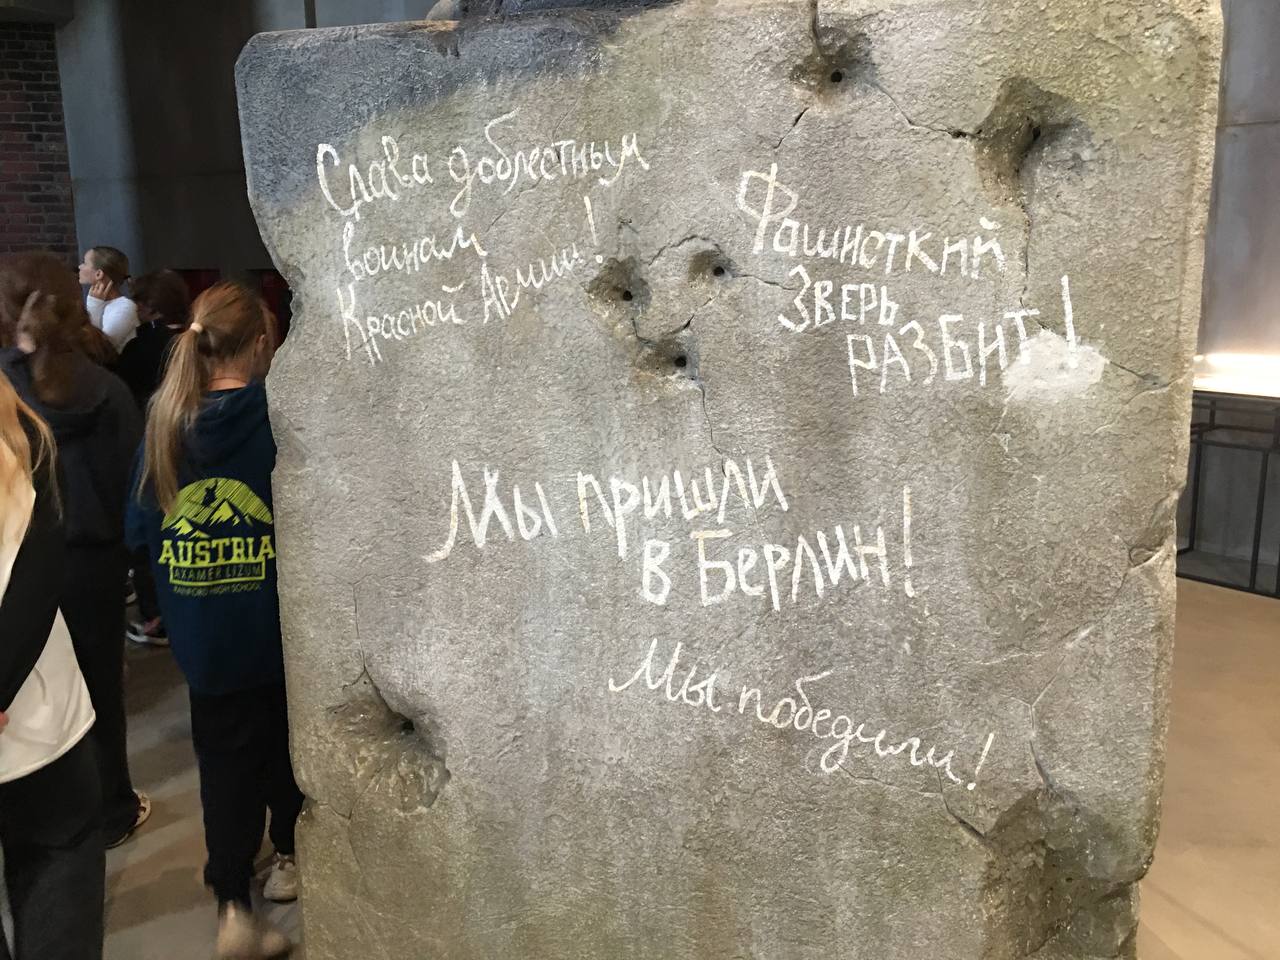 Слава доблестным
воинам
Красной Армии!
Фашисткий
Зверь
РАЗБИТ!
Мы пришли
в Берлин!
Мы победили!
AUSTRIA
AXAMER LIZUM
RAINFORD HIGH SCHOOL